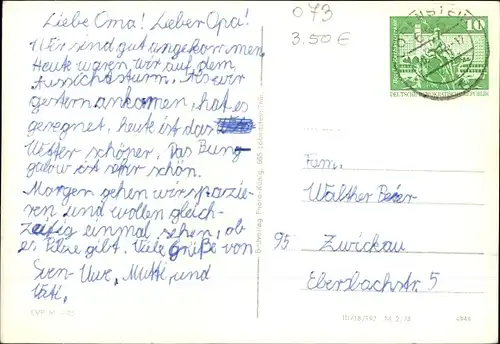 Liebe Oma! Lieber Opa!
Wir sind gut angekommen.
Heute waren wir auf dem
Aussichtsturm. Als wir
gestern ankamen, hat es
geregnet, heute ist das
Wetter schöner. Das Bung-
galow ist sehr schön.
Morgen gehen wir spazie-
ren und wollen gleich-
zeitig einmal sehen, ob
es Pilze gibt. Viele Grüße von
Sven-Uwe, Mutti, und
Vati.
EVP M
073
3.50 €
10
DEUTSCHE DEMOKRATISCHE REPUBLIK
Fam.
Walther
95 Zwickau
Ebersbachstr. 5
III/18/192
4944